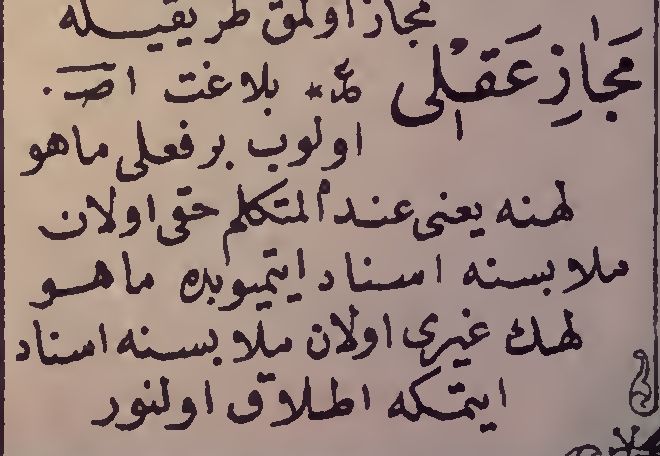 مجاز اولمق طريقيله
مَجَازِ عَقْلِى بلاغت اصـ.
اولوب بر فعلى ماهو
لهنه يعنى عند المتكلم حقى اولان
ملابسنه اسناد ايتميوبده ماهو
لهك غيرى اولان ملابسنه اسناد
ايتمكه اطلاق اولنور